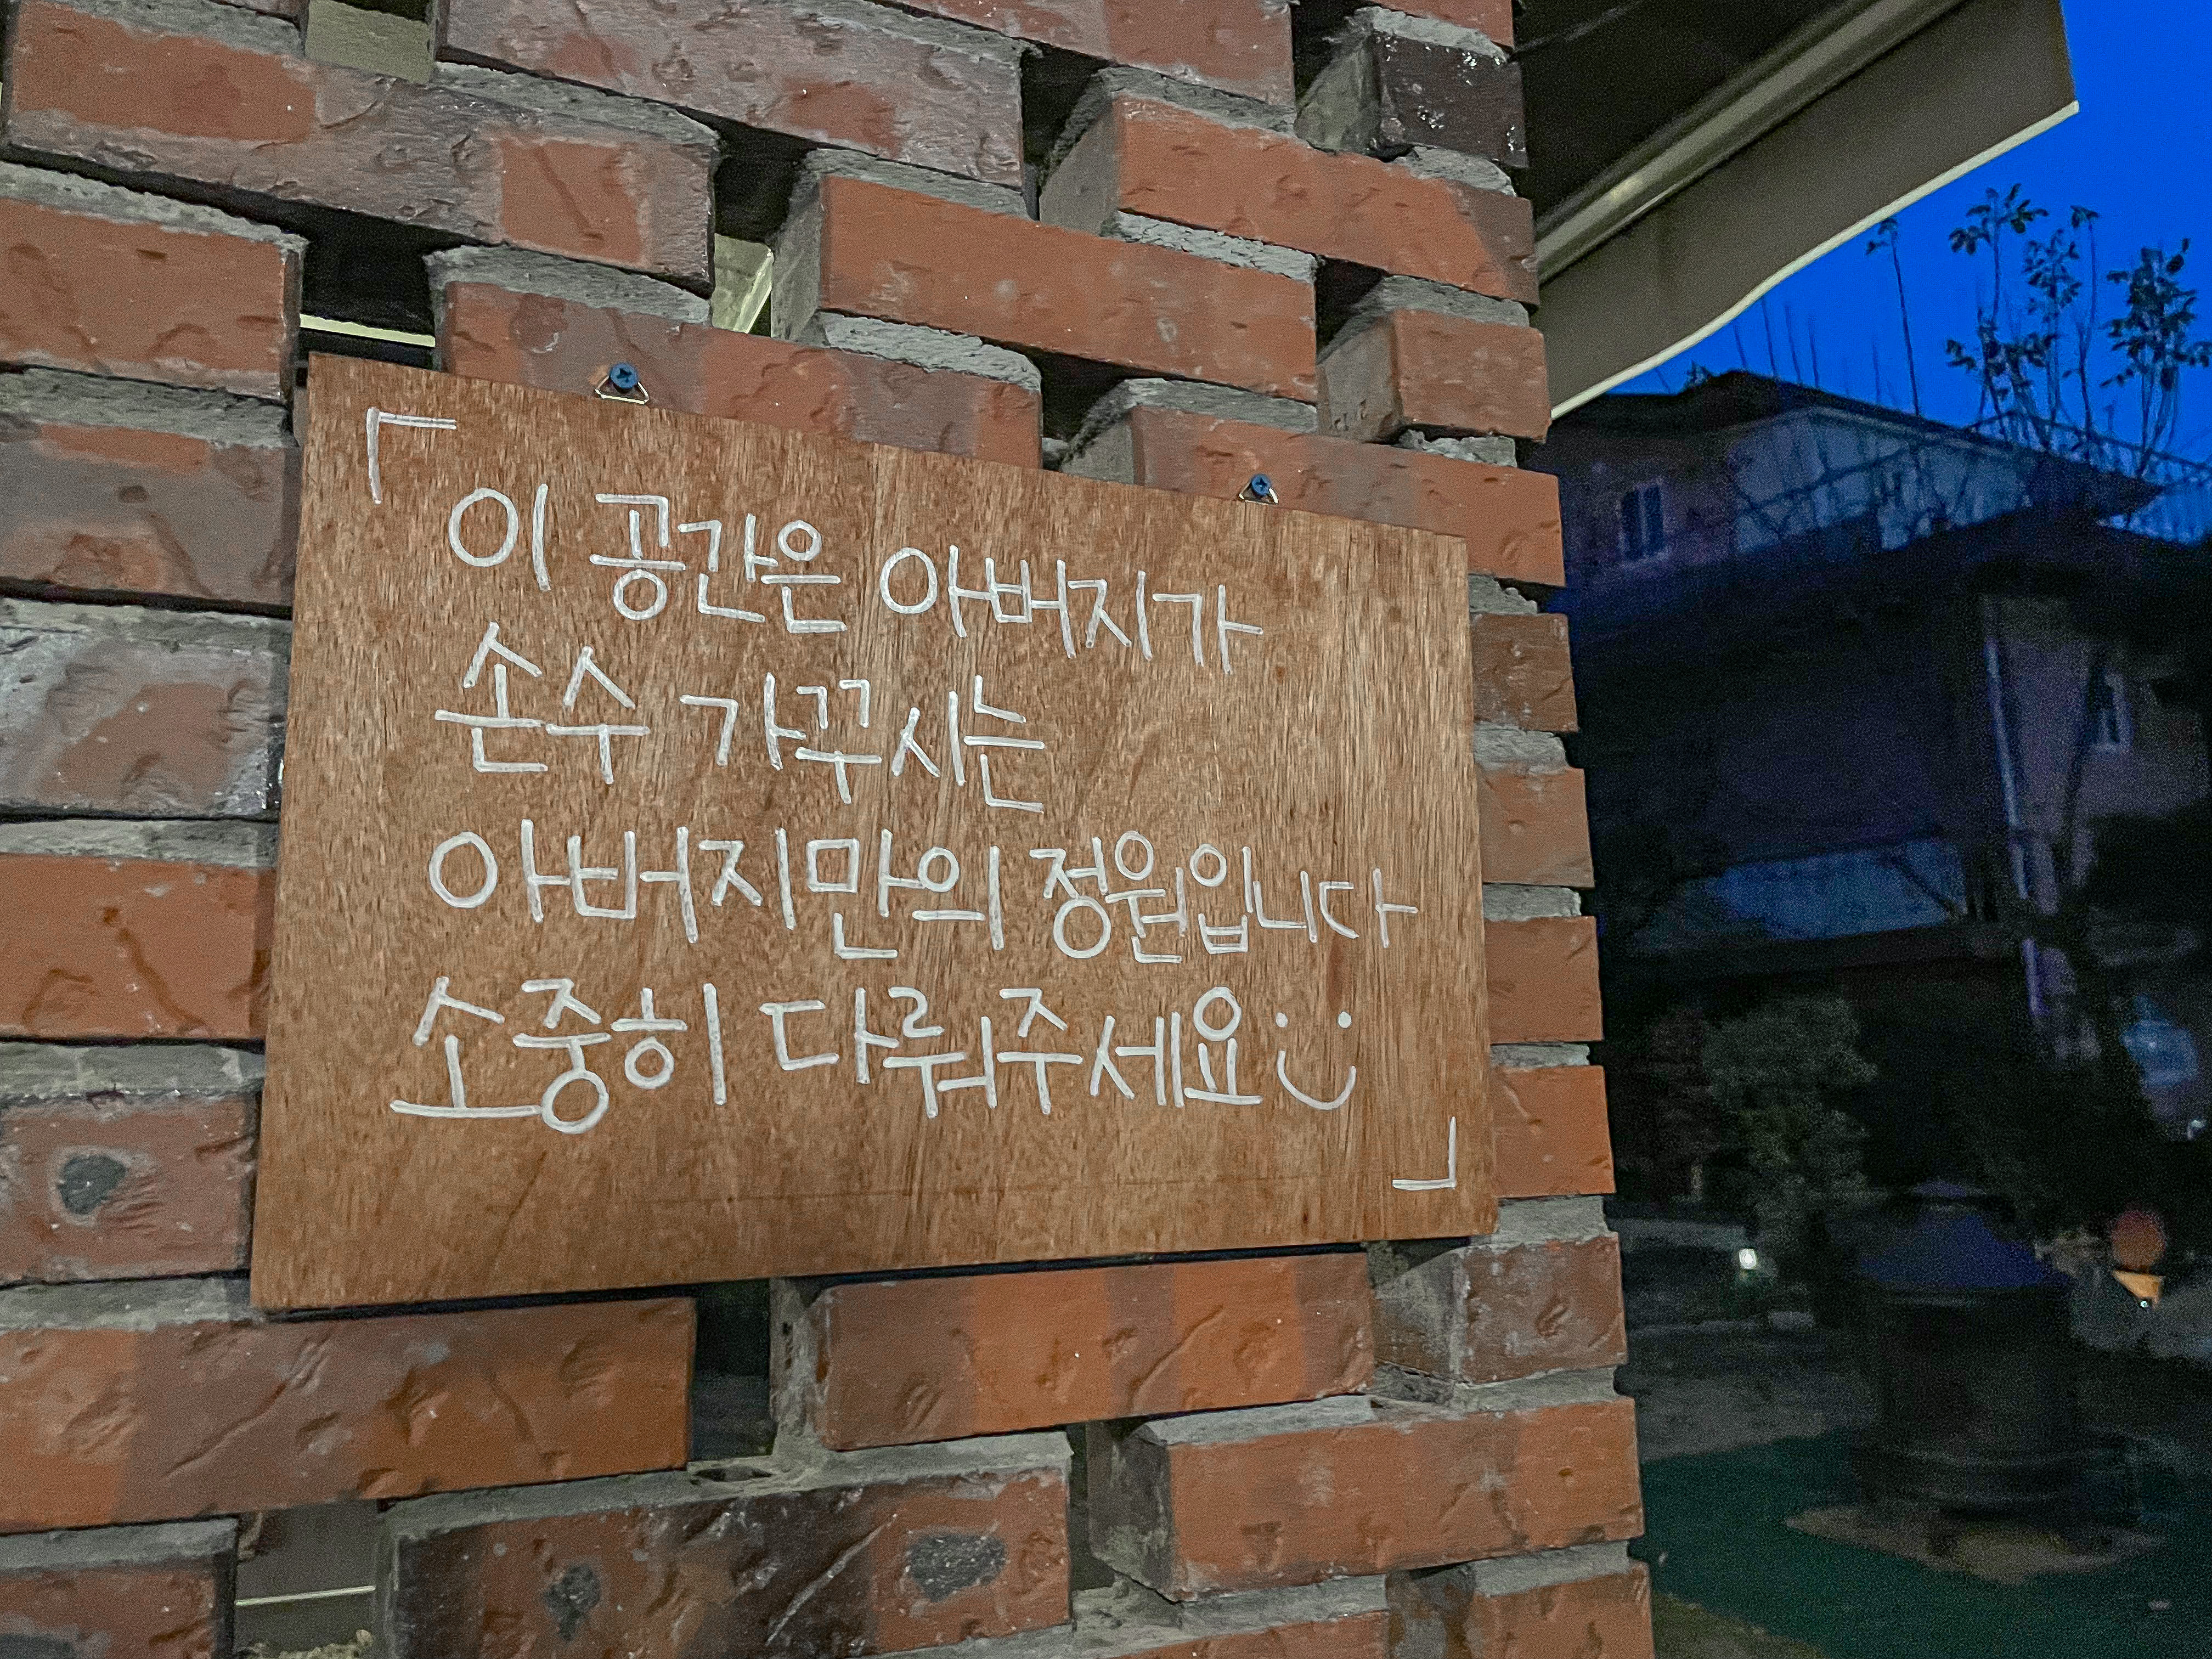 「이 공간은 아버지가
손수 가꾸시는
아버지만의 정원입니다
소중히 다뤄주세요 :)」